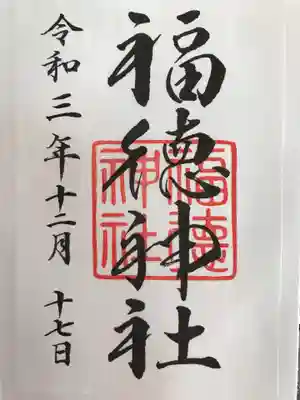 福徳神社
令和三年十二月 十七日
福徳神社